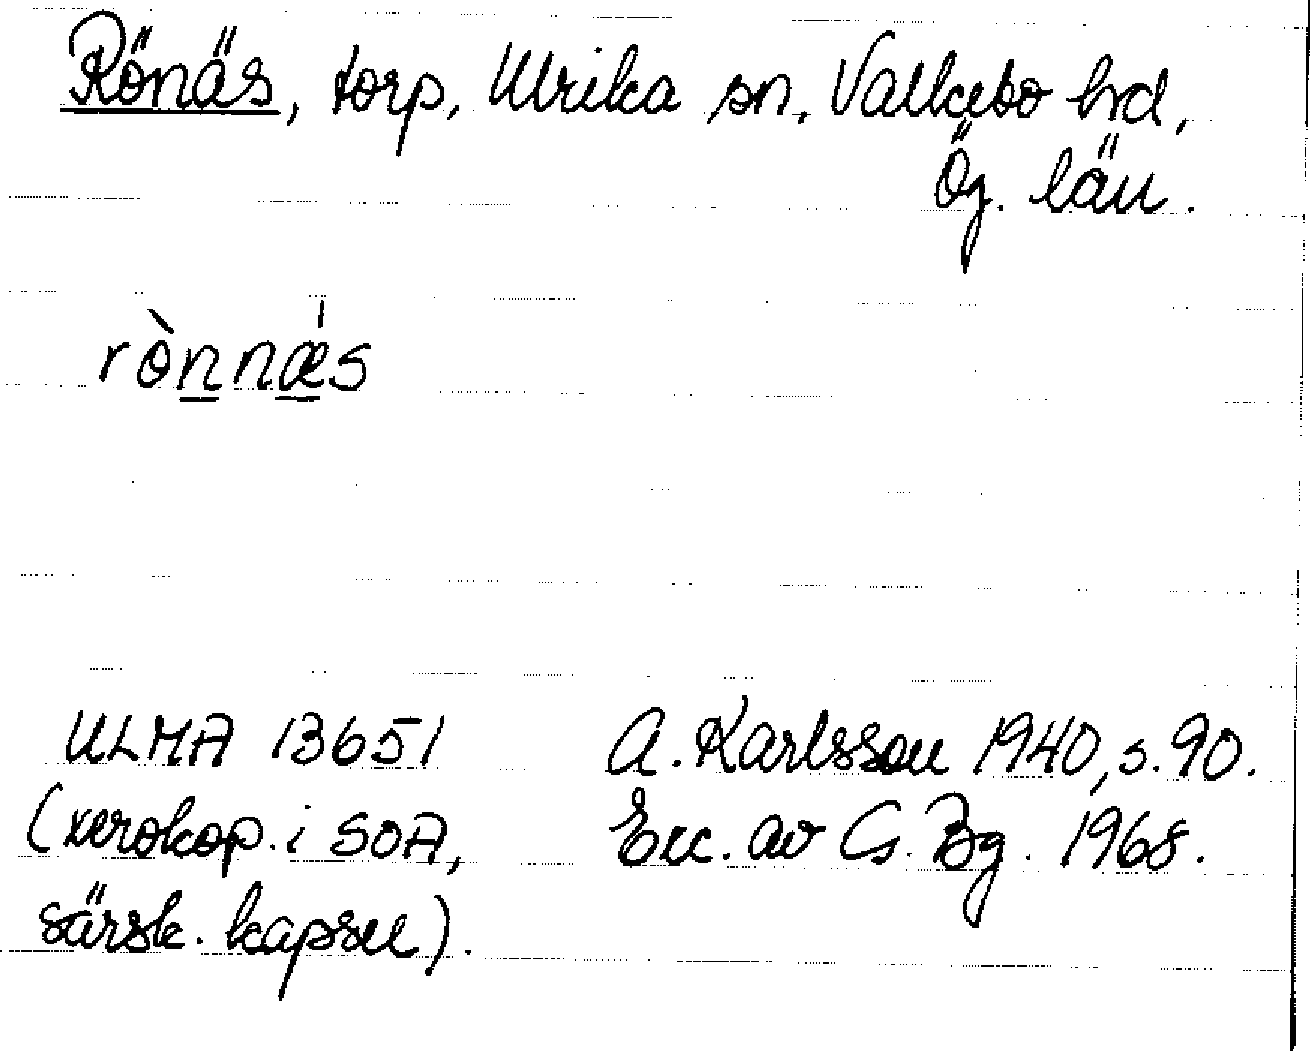 Rönäs, torp, Ulrika sn, Valkebo hd,
Ög. län.
rònnǽs
ULMA 13651 A. Karlsson 1940, s. 90.
(xerokop. i SOA, Exc. av G. Bg. 1968.
särsk. kapsel).